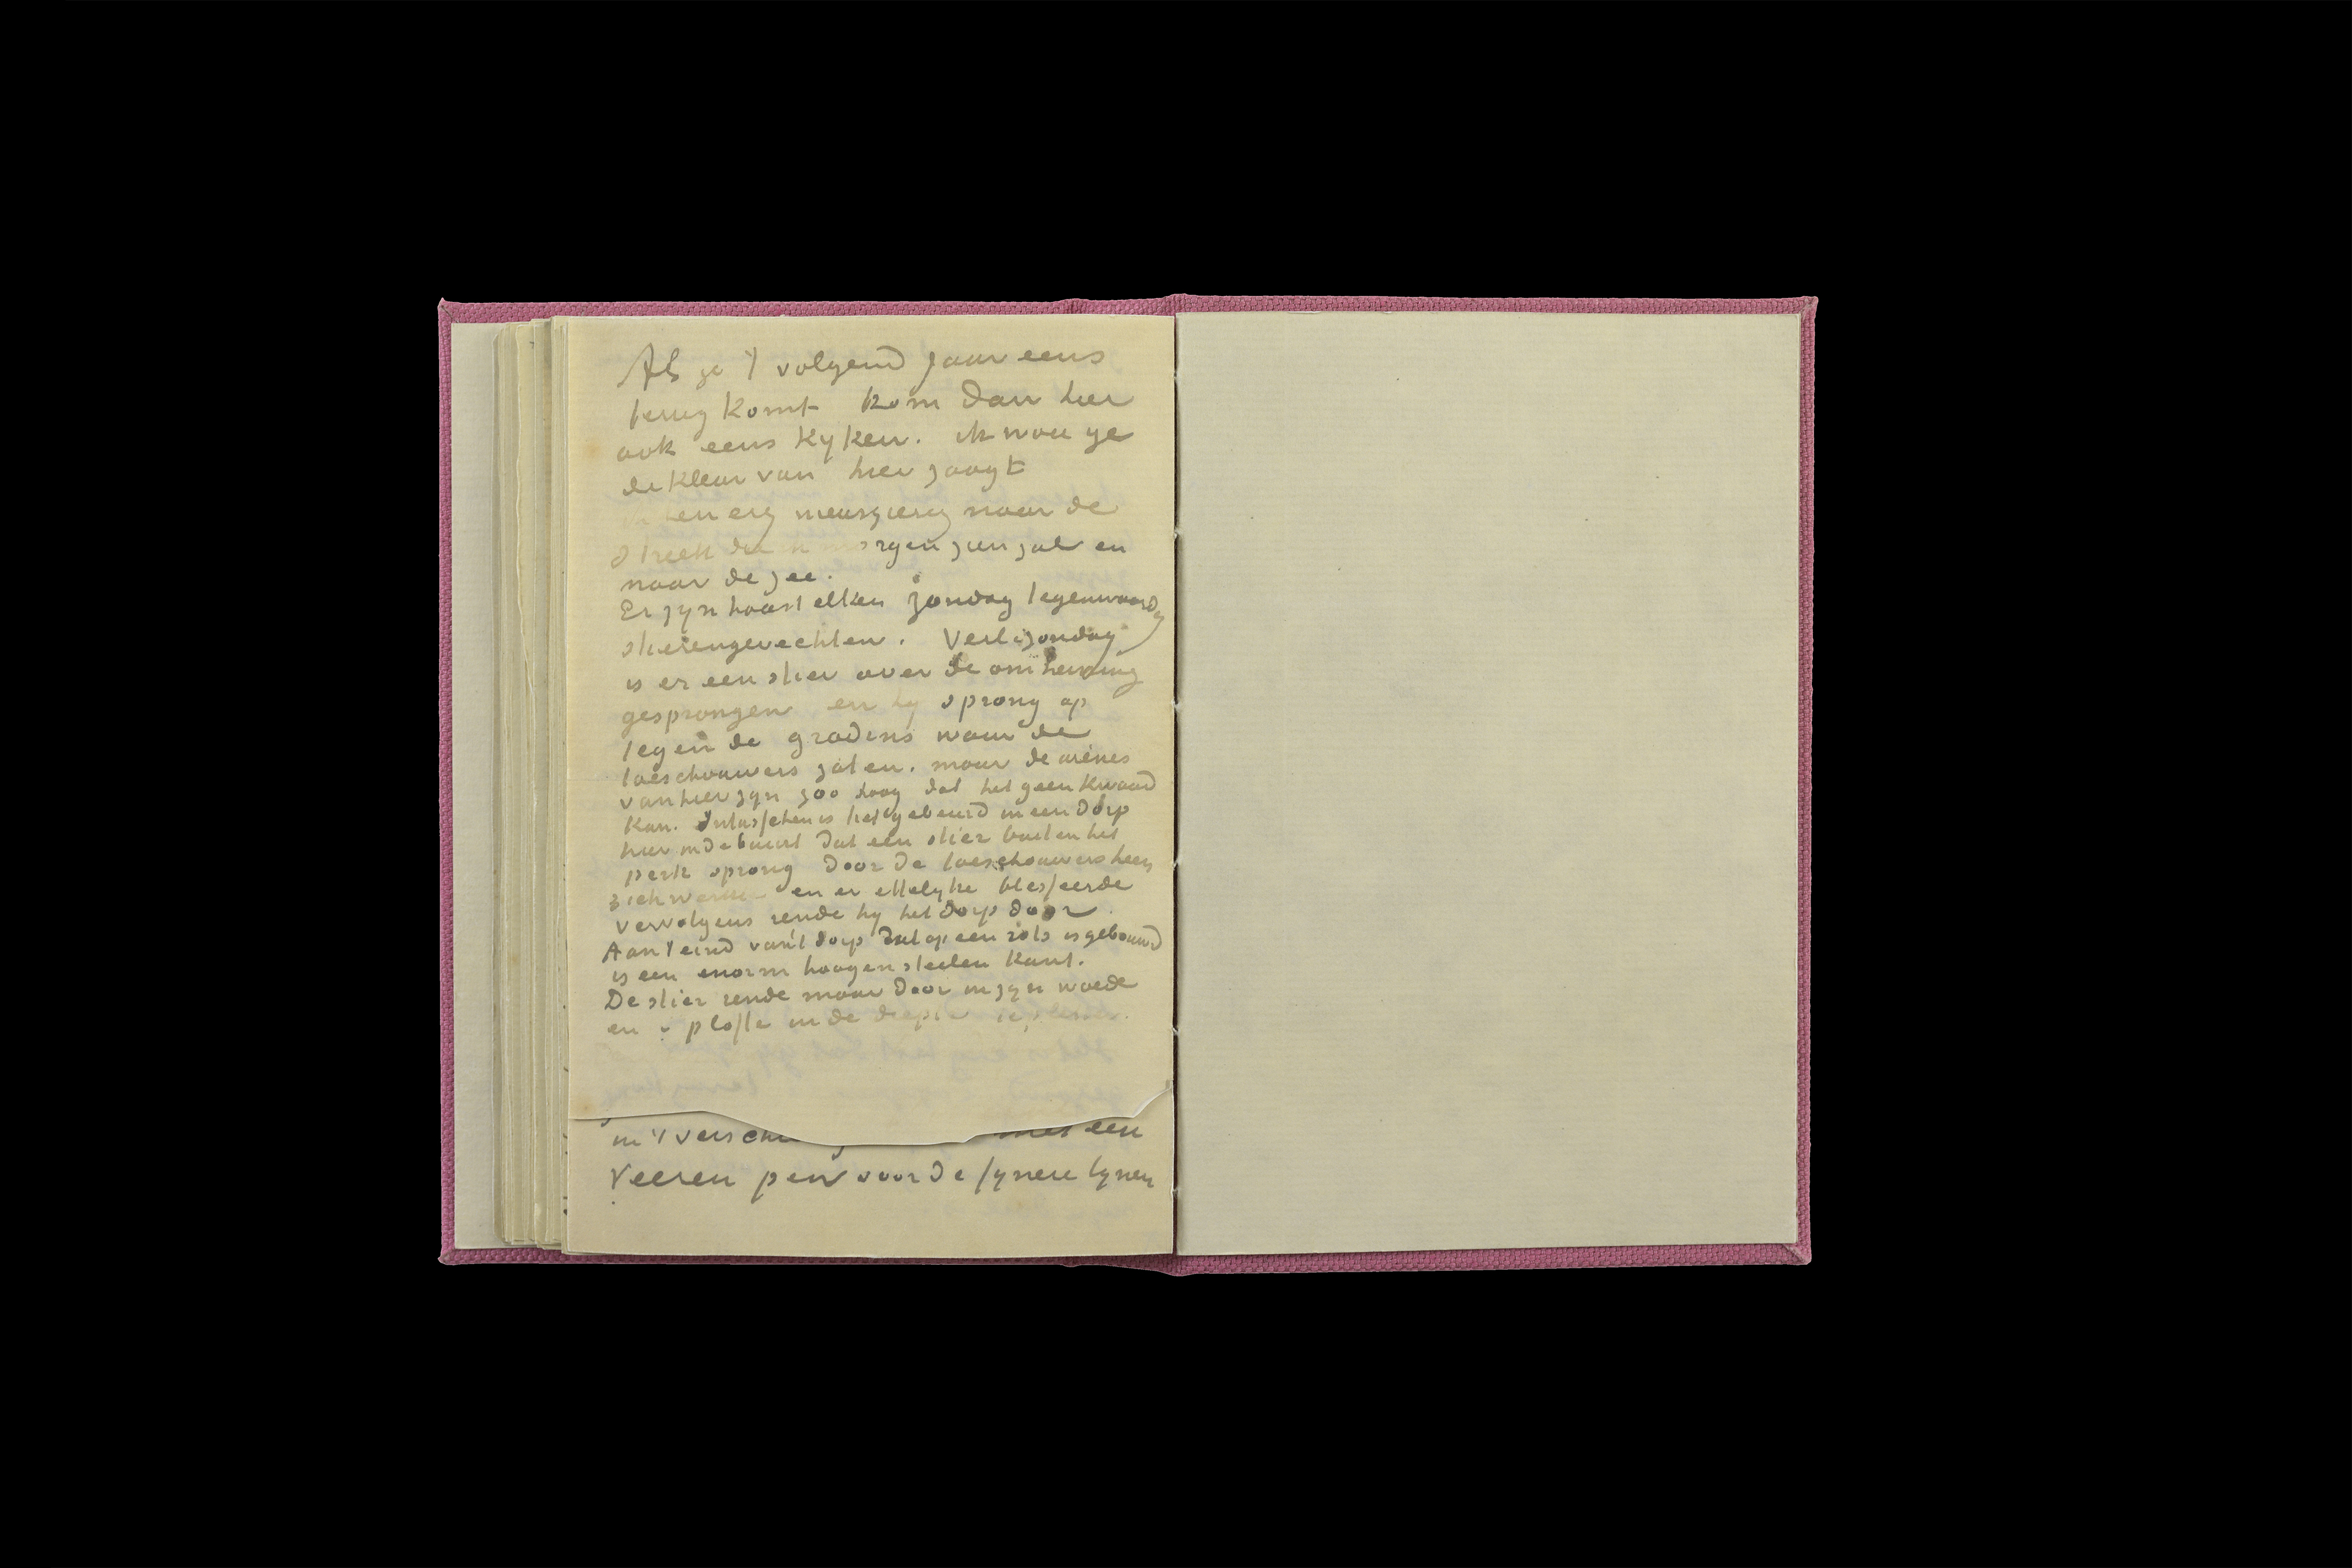 Als ge 't volgend jaar eens
terug komt kom dan hier
ook eens kyken. ik wou ge
de kleur van hier zaagt
ik ben erg nieuwsgierig naar de
streek die ik morgen zien zal en
naar de zee.
Er zyn haast elken zondag tegenwoordig
stierengevechten. Verl. zondag
is er een stier over de omheining
gesprongen en hy sprong op
tegen de gradins waar de
toeschouwers zaten. maar de arènes
van hier zyn zoo hoog dat het geen kwaad
kan. Intusschen is het gebeurd in een dorp
hier in de buurt dat een stier buiten het
perk sprong door de toeschouwers heen
zich werkte en er ettelyke blesseerde
vervolgens rende hy het dorp door.
Aan 't eind van 't dorp dat op een rots is gebouwd
is een enorm hoogen steilen kant.
De stier rende maar door in zyn woede
en plofte in de diepte te pletter.
in 't met een
Veeren pen voor de fynere lynen